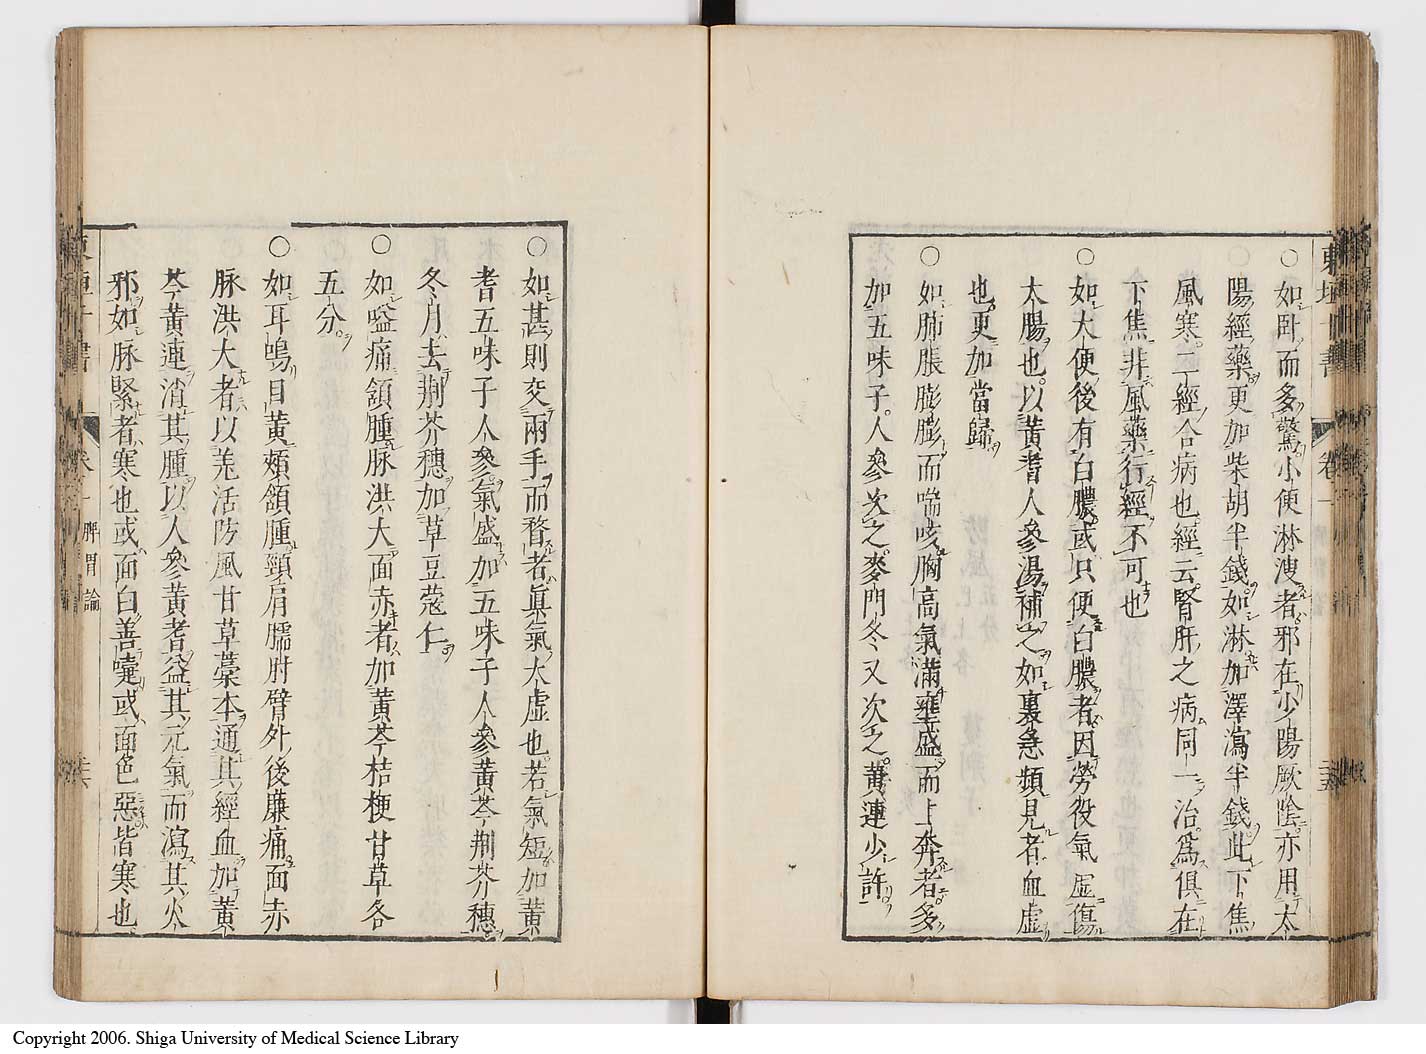 東垣十書 卷一 二十五
〇如臥而多驚小便淋溲者邪在少陽厥陰亦用太
陽經藥更加柴胡半錢如淋加澤瀉半錢此下焦
風寒二經合病也經云腎肝之病同一治爲俱在
下焦非風藥行經不可也
〇如大便後有白膿或只便白膿者因勞役氣虛傷
太腸也以黃耆人參湯補之如裏急頻見者血虛
也更加當歸
〇如肺脹膨膨而喘咳胸高氣滿壅盛而上奔者多
加五味子人參次之麥門冬又次之黃連少許
〇如甚則交兩手而瞀者眞氣大虛也若氣短加黃
耆五味子人參氣盛加五味子人參黃芩荆芥穗
冬月去荆芥穗加草豆蔻仁
〇如嗌痛頷腫脉洪大面赤者加黃芩桔梗甘草各
五分
〇如耳鳴目黃頰頷腫頸肩臑肘臂外後廉痛面赤
脉洪大者以羌活防風甘草藁本通其經血加黃
芩黃連消其腫以人參黃耆益其元氣而瀉其火
邪如脉緊者寒也或面白善嚏或面色惡皆寒也
東垣十書 卷一 脾胃論 二十六
Copyright 2006. Shiga University of Medical Science Library